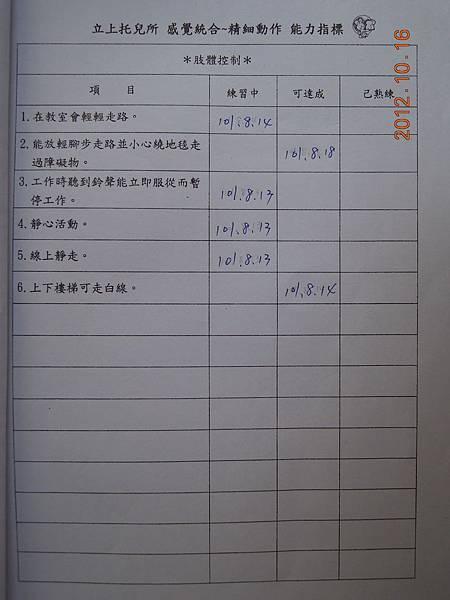 立上托兒所 感覺統合~精細動作 能力指標
＊肢體控制＊
項 目 練習中 可達成 已熟練
1.在教室會輕輕走路。 101.8.14
2.能放輕腳步走路並小心繞地毯走
過障礙物。 101.8.18
3.工作時聽到鈴聲能立即服從而暫
停工作。 101.8.13
4.靜心活動。 101.8.13
5.線上靜走。 101.8.13
6.上下樓梯可走白線。 101.8.14
2012.10.16